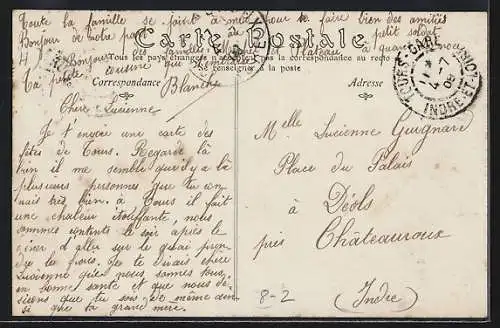 Toute la famille se joint à moi pour te faire bien des amitiés
Bonjour de notre part petit soldat
Bonjour des familles
Ta petite cousine qui
Blanche
Carte Postale
Tous les pays étrangers n'acceptent pas la correspondance au recto
Se renseigner à la poste
Correspondance
Adresse
TOURS-GARE
4-7
08
INDRE-ET-
Chère Lucienne
Je t'envoie une carte des
fêtes de Tours. Regarde là
bien il me semble qu'il y a là
plusieurs personnes que tu con
nais très bien. à Tours il fait
une chaleur étouffante, nous
sommes contents le soir après le
diner d'aller sur le quai pren
dre la frais. Je te dirais chère
Lucienne que nous sommes tous
en bonne santé et que nous dé
sirons que tu sois de même ain
si que ta grand mère.
Melle Lucienne Guignard
Place du Palais
à Déols
près Châteauroux
(Indre)
8-2